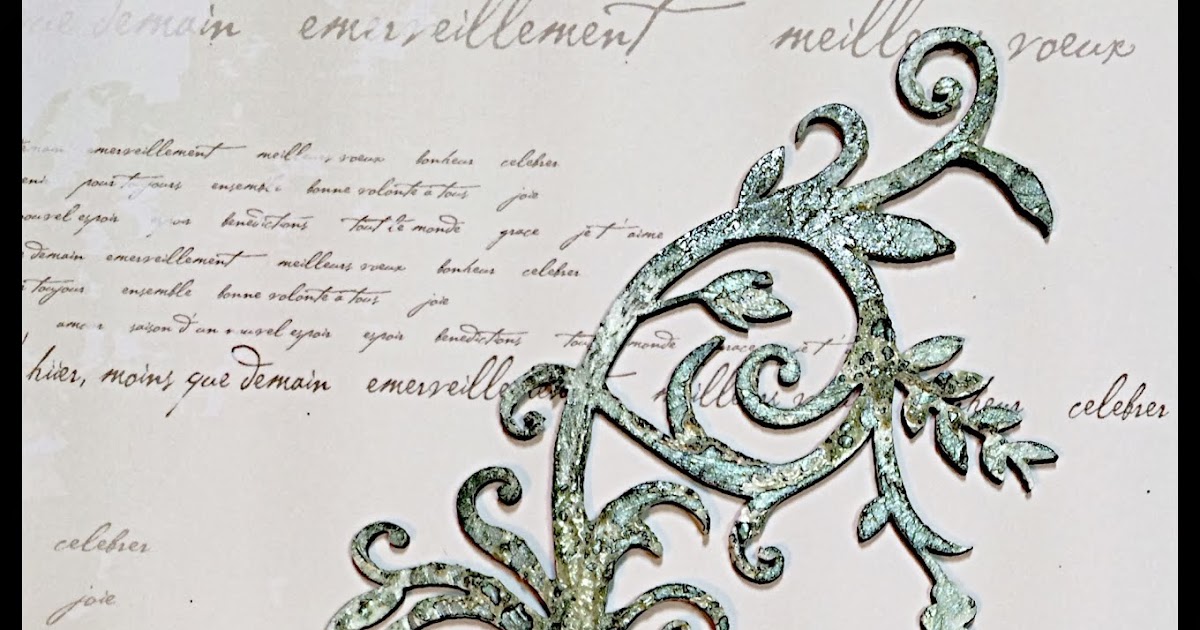 que demain emerveillement meilleurs voeux
emerveillement meilleurs voeux bonheur celebrer
pour toujours ensemble bonne volonte a tous joie
nouvel espoir espoir benedictions tout le monde grace je t'aime
demain emerveillement meilleurs voeux bonheur celebrer
toujour ensemble bonne volonte a tous joie
amour saison d'un nouvel espoir espoir benedictions tout monde grace je t
hier, moins que demain emerveillement meilleurs bonheur celebrer
celebrer
joie